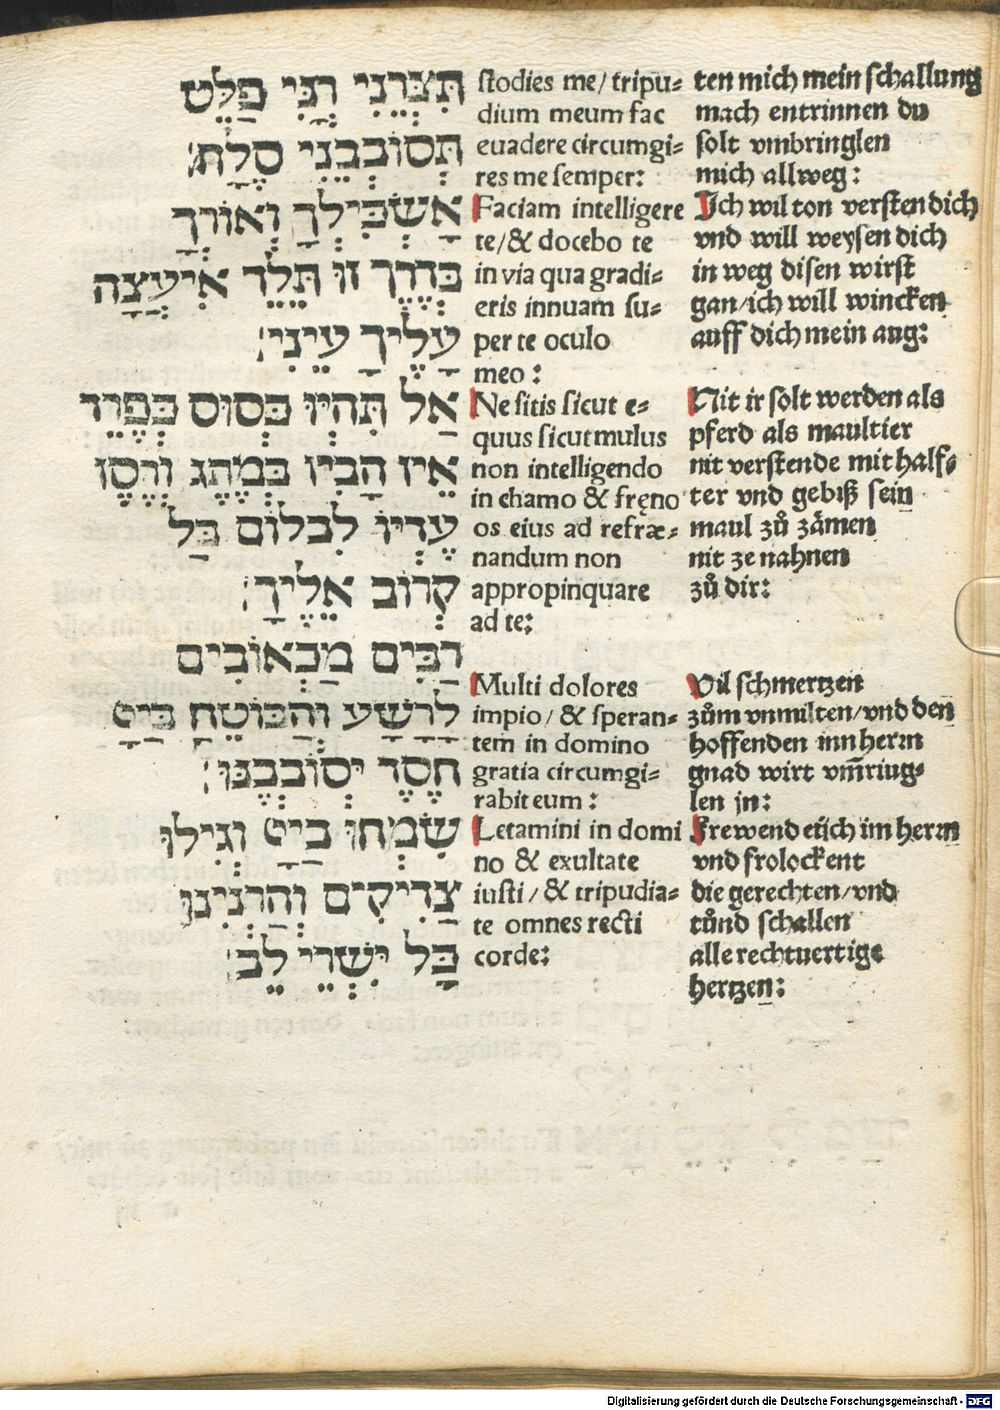 תִּצְּרֵנִי רָנֵּי פַלֵּט
תְּסוֹבְבֵנִי סֶלָה׃
אַשְׂכִּילְךָ וְאוֹרְךָ
בְּדֶרֶךְ זוּ תֵלֵךְ אִיעֲצָה
עָלֶיךָ עֵינִי׃
אַל תִּהְיוּ כְּסוּס כְּפֶרֶד
אֵין הָבִין בְּמֶתֶג וְרֶסֶן
עֶדְיוֹ לִבְלוֹם בַּל
קְרוֹב אֵלֶיךָ׃
רַבִּים מַכְאוֹבִים
לָרָשָׁע וְהַבּוֹטֵחַ בַּייָ
חֶסֶד יְסוֹבְבֶנּוּ׃
שִׂמְחוּ בַייָ וְגִילוּ
צַדִּיקִים וְהַרְנִינוּ
כָּל יִשְׁרֵי לֵב׃
stodies me/ tripu=
dium meum fac
euadere circumgi=
res me semper:
Faciam intelligere
te/ & docebo te
in via qua gradi=
eris innuam su=
per te oculo
meo :
Ne sitis sicut e=
quus sicut mulus
non intelligendo
in chamo & fręno
os eius ad refræ=
nandum non
appropinquare
ad te:
Multi dolores
impio/ & speran=
tem in domino
gratia circumgi=
rabit eum :
Letamini in domi
no & exultate
iusti/ & tripudia=
te omnes recti
corde:
ten mich mein schallung
mach entrinnen du
solt vmbringlen
mich allweg:
Ich wil ton versten dich
vnd will weysen dich
in weg disen wirst
gan/ich will wincken
auff dich mein aug:
Nit ir solt werden als
pferd als maultier
nit verstende mit half=
ter vnd gebiß sein
maul zů zämen
nit ze nahnen
zů dir:
Vil schmertzen
zům vnmilten/vnd den
hoffenden inn herrn
gnad wirt vm̃ring=
len jn:
Frewend eüch im herrn
vnd frolockent
die gerechten/vnd
tůnd schallen
alle rechtuertige
hertzen:
Digitalisierung gefördert durch die Deutsche Forschungsgemeinschaft - DFG